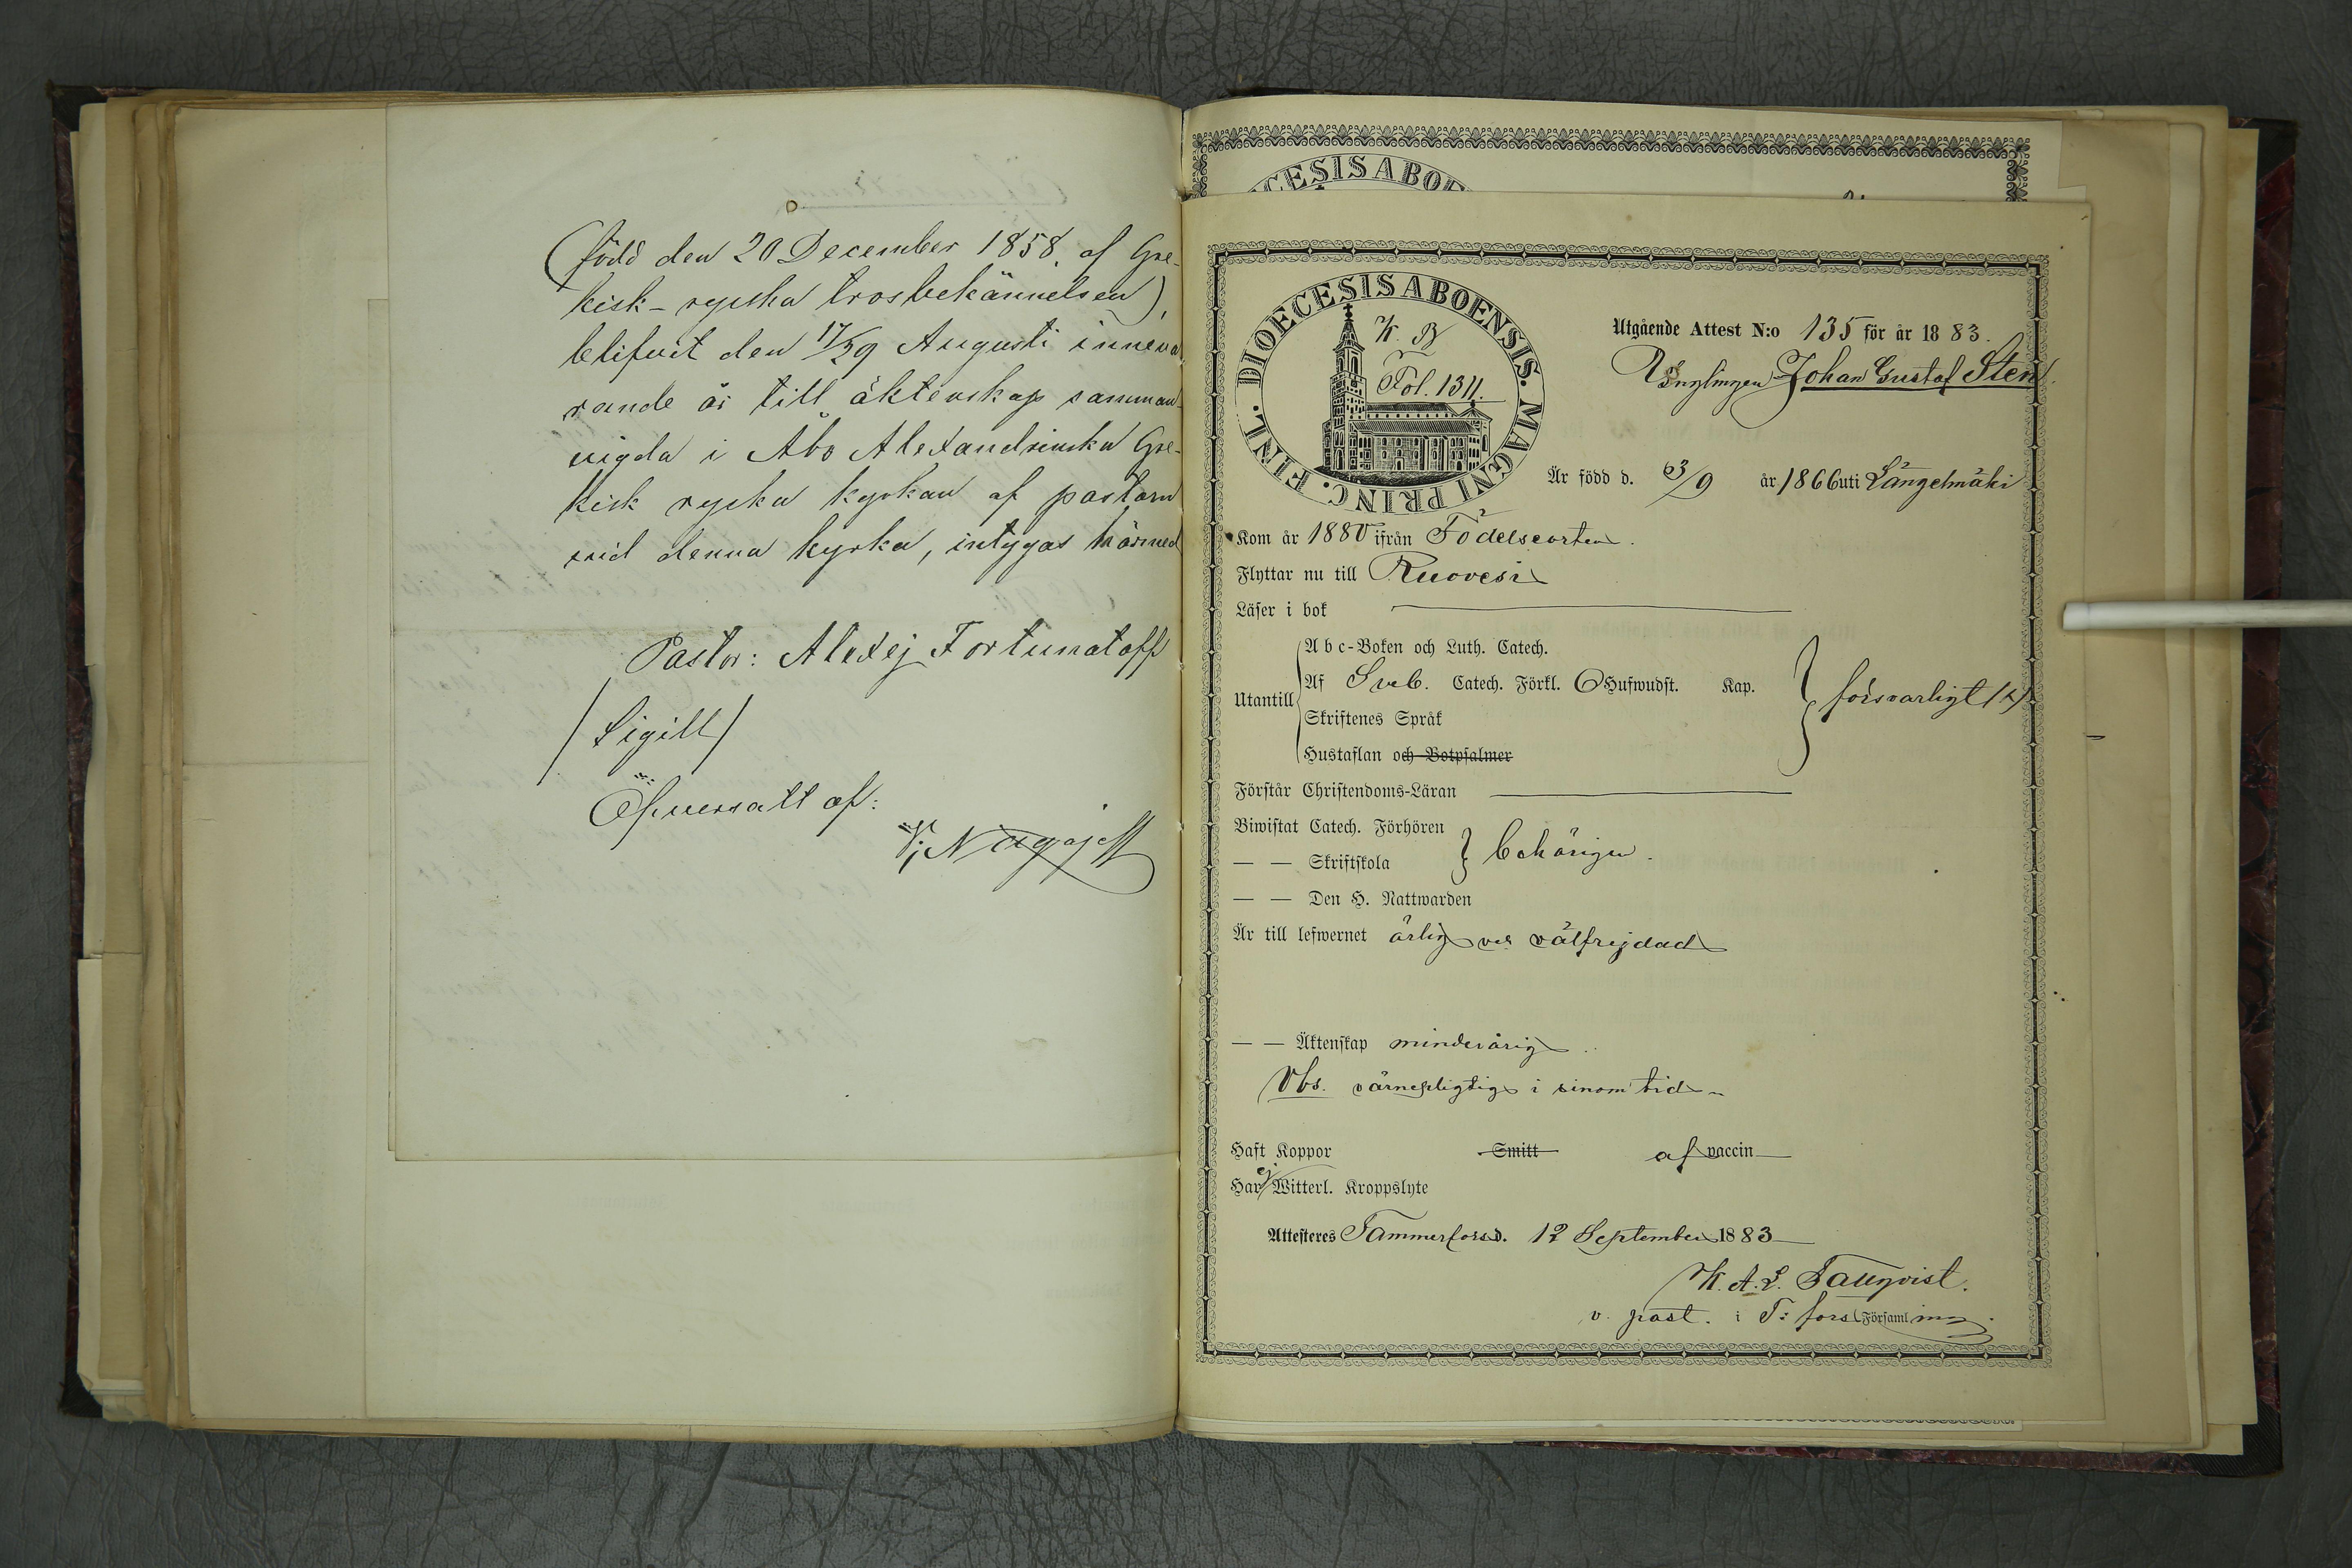 (född den 20 December 1858. af Gre-
kisk-ryska trosbekännelsen),
blifvit den 17/29 Augusti inneva
rande år till äktenskap samman-
vigda i Åbo Alexandrinska Gre-
kisk ryska kyrkan af pastorn
vid denna kyrka, intygas härmed
Pastor: Alexej Fortunatoff
/Sigill/
Öfversatt af:
DIOECESIS ABOENSIS. MAGNI PRINC. FINL.
K. B
Fol. 1311.
Utgående Attest N:o 135 för år 1883.
Ynglingen Johan Gustaf Sten
Är född d. 3/9 år 1866 uti Längelmäki
Kom år 1880 ifrån Födelseorten.
Flyttar nu till Ruovesi
Läser i bok
Utantill
A b c-Boken och Luth. Catech.
Af Sveb. Catech. Förkl. 6 Hufwudst. Kap.
Skriftenes Språk
Hustaflan och Botpsalmer
försvarligt
Förstår Christendoms-Läran
Biwistat Catech. Förhören
— — Skriftskola
behörigen.
— — Den H. Nattwarden
Är till lefwernet ärlig och välfrejdad
— — Äktenskap minderårig
Obs. värnepligtig i sinom tid
Haft Koppor Smitt af vaccin
Har ej Witterl. Kroppslyte
Attesteres Tammerfors d. 12 September 1883
K. A. L. Tallqvist.
v. past. i T:fors Församling.
CESIS ABOE